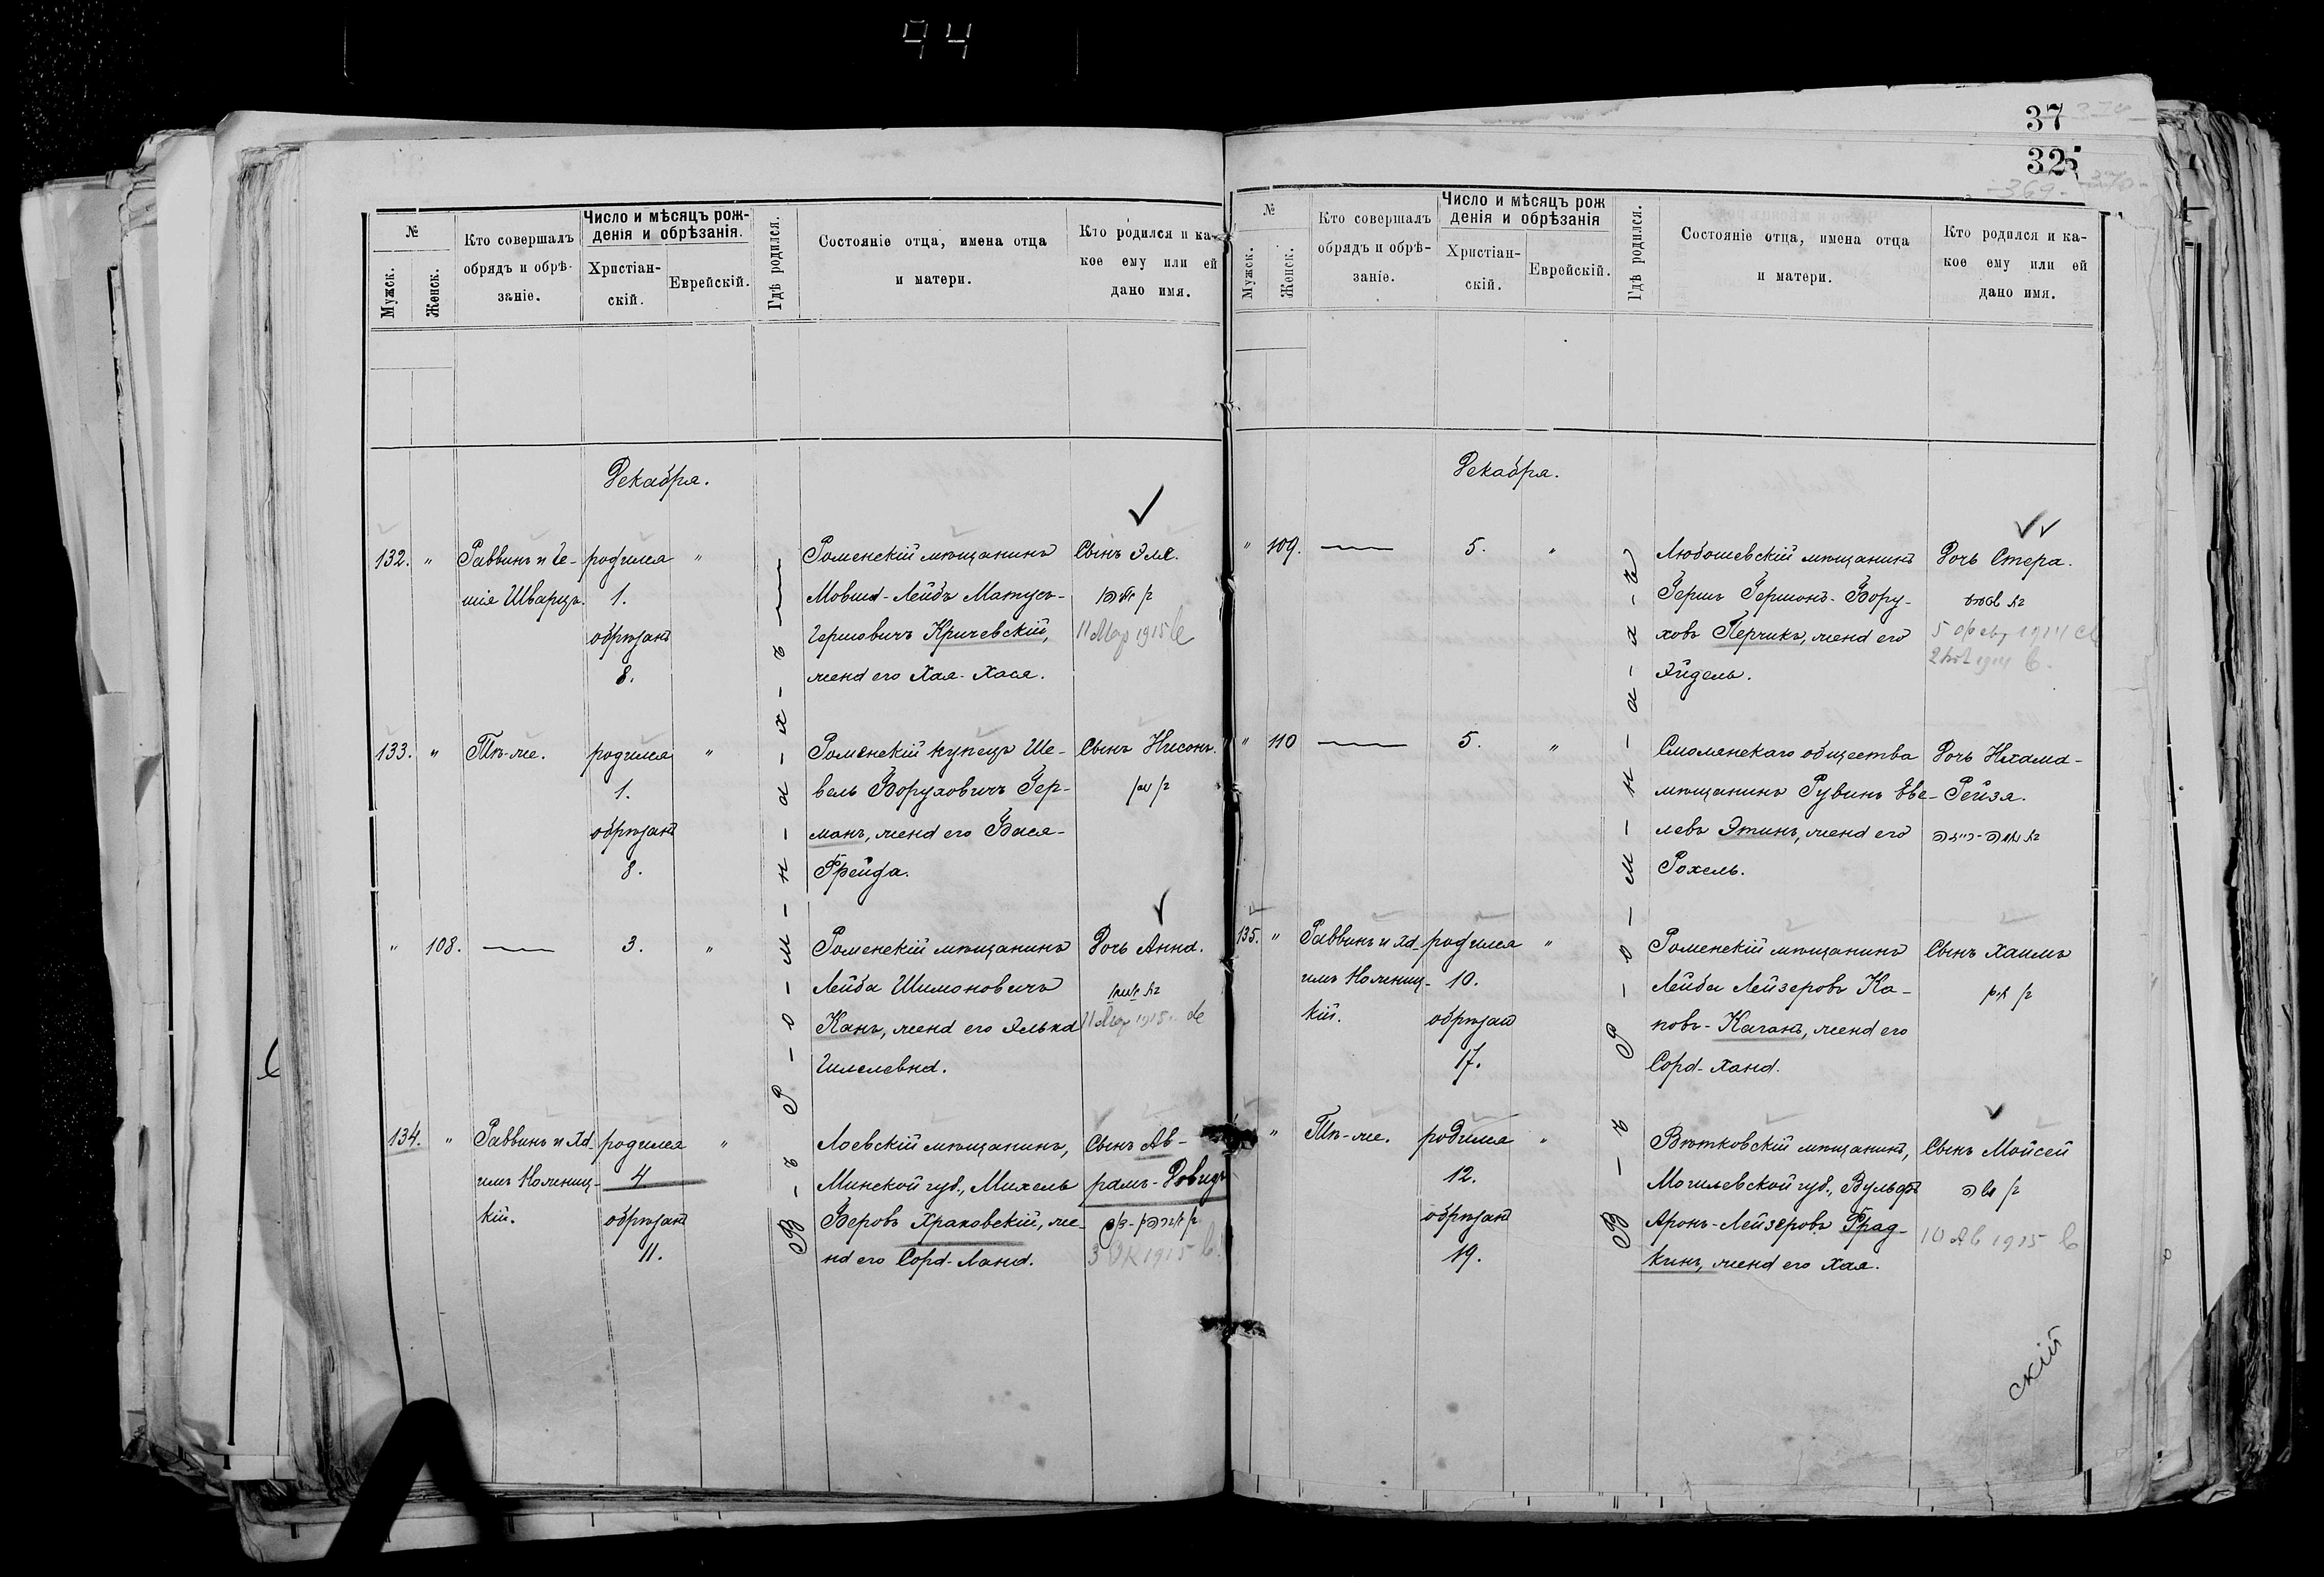 94
37
325
№
Мужск.
Женск.
Кто совершалъ
обрядъ и обрѣ-
заніе.
Число и мѣсяцъ рож-
денія и обрѣзанія.
Христіан-
скій.
Еврейскій.
Гдѣ родился.
Состояніе отца, имена отца
и матери.
Кто родился и ка-
кое ему или ей
дано имя.
Декабря.
132. " Раввинъ и
Шварцъ.
родился "
1.
обрѣзанъ
8.
Роменскій мѣщанинъ
Мовша-Лейбъ Матус-
Гершовичъ Кричевскій,
жена его Хая-Хася.
Сынъ
11 Мар 1915
133. " Тѣ-же.
родился "
1.
обрѣзанъ
8.
Роменскій купецъ Ше-
вель Боруховичъ Гер-
манъ, жена его Бася-
Фрейда.
Сынъ Нисонъ.
" 108. — 3. "
Роменскій мѣщанинъ
Лейба Шимоновичъ
Канъ, жена его Элька
Дочь Анна.
134. " Раввинъ и Ха-
имъ
кій.
родился "
4
обрѣзанъ
11.
Лоевскій мѣщанинъ,
Минской губ., Михель
Беровъ Храковскій, же-
на его Сора-Лана.
Сынъ Ав-
рамъ-Довидъ
1915
В-ъ Р-о-м-н-а-х-ъ
№
Мужск.
Женск.
Кто совершалъ
обрядъ и обрѣ-
заніе.
Число и мѣсяцъ рож
денія и обрѣзанія
Христіан-
скій.
Еврейскій.
Гдѣ родился.
Состояніе отца, имена отца
и матери.
Кто родился и ка-
кое ему или ей
дано имя.
Декабря.
" 109. — 5. "
Любошевскій мѣщанинъ
Гершъ Гершонъ-Бору-
ховъ Перчикъ, жена его
Эйдель.
Дочь Стера.
1914
" 110 — 5. "
Смолянскаго общества
мѣщанинъ Рувинъ Еве-
левъ Этинъ, жена его
Рохель.
Дочь Нхама-
Рейзя.
135. " Раввинъ и Ха-
имъ
кій.
родился "
10.
обрѣзанъ
17.
Роменскій мѣщанинъ
Лейба Лейзеровъ Ка-
повъ-Каганъ, жена его
Сора-Хана.
Сынъ Хаимъ
חיים
" Тѣ-же.
родился "
12.
обрѣзанъ
19.
Вѣтковскій мѣщанинъ,
Могилевской губ., Вульфъ
Аронъ-Лейзеровъ Фрад-
кинъ, жена его Хая.
Сынъ Мойсей
משה
10 1915
В-ъ Р-о-м-н-а-х-ъ
скій